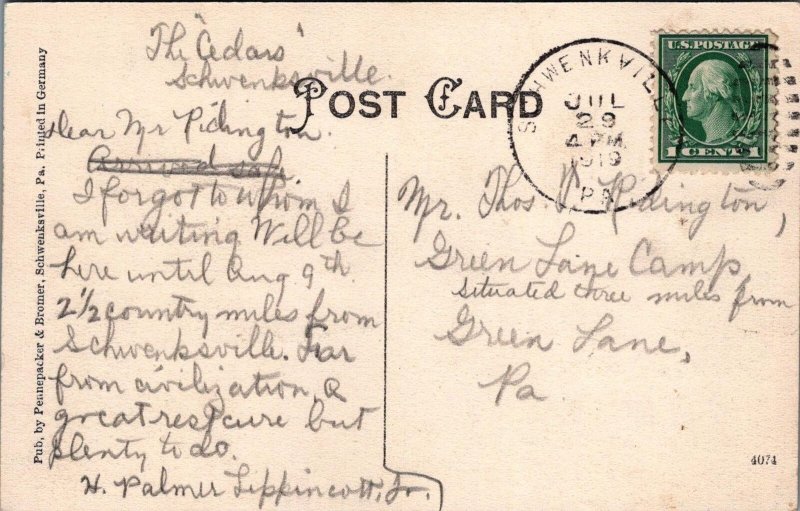 The "Cedars"
Schwenksville.
POST CARD
SCHWENKVILLE
JUL
29
4 PM
1919
PA.
U.S. POSTAGE
1 CENT 1
Dear Mr Pidington.
Arrived safe
I forgot to whom I
am writing Will be
here until Aug 9th.
2 1/2 country miles from
Schwenksville. Far
from civilization. A
great rest cure but
plenty to do.
H. Palmer Lippincott, Jr.
Mr. Thos. Ridington,
Green Lane Camp,
situated three miles from
Green Lane,
Pa.
Pub. by Pennepacker & Bromer, Schwenksville, Pa. Printed in Germany
4074